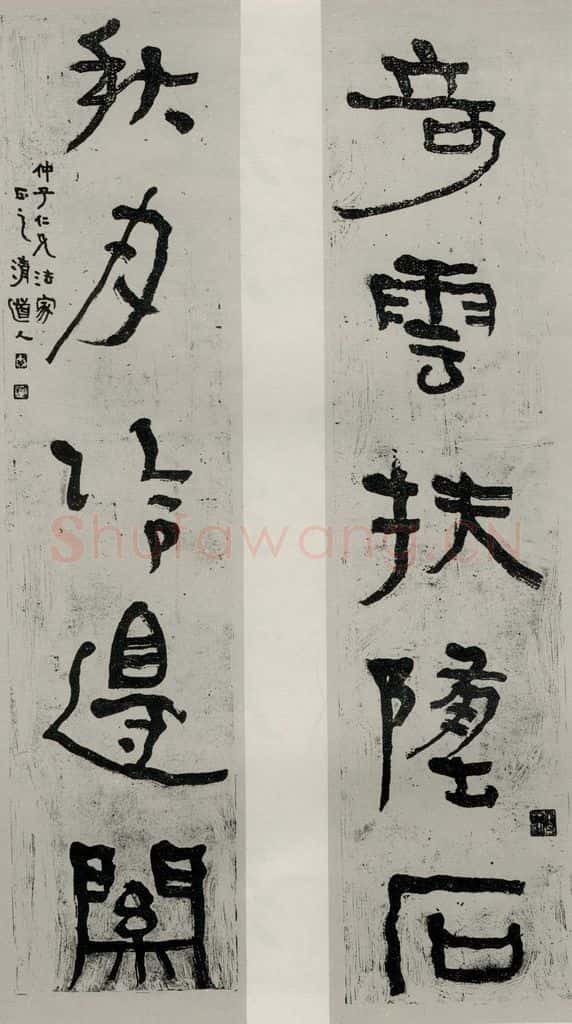 奇雲扶墮石
秋月冷邊關
仲子仁兄法家
正之清道人
Shufawang.CN